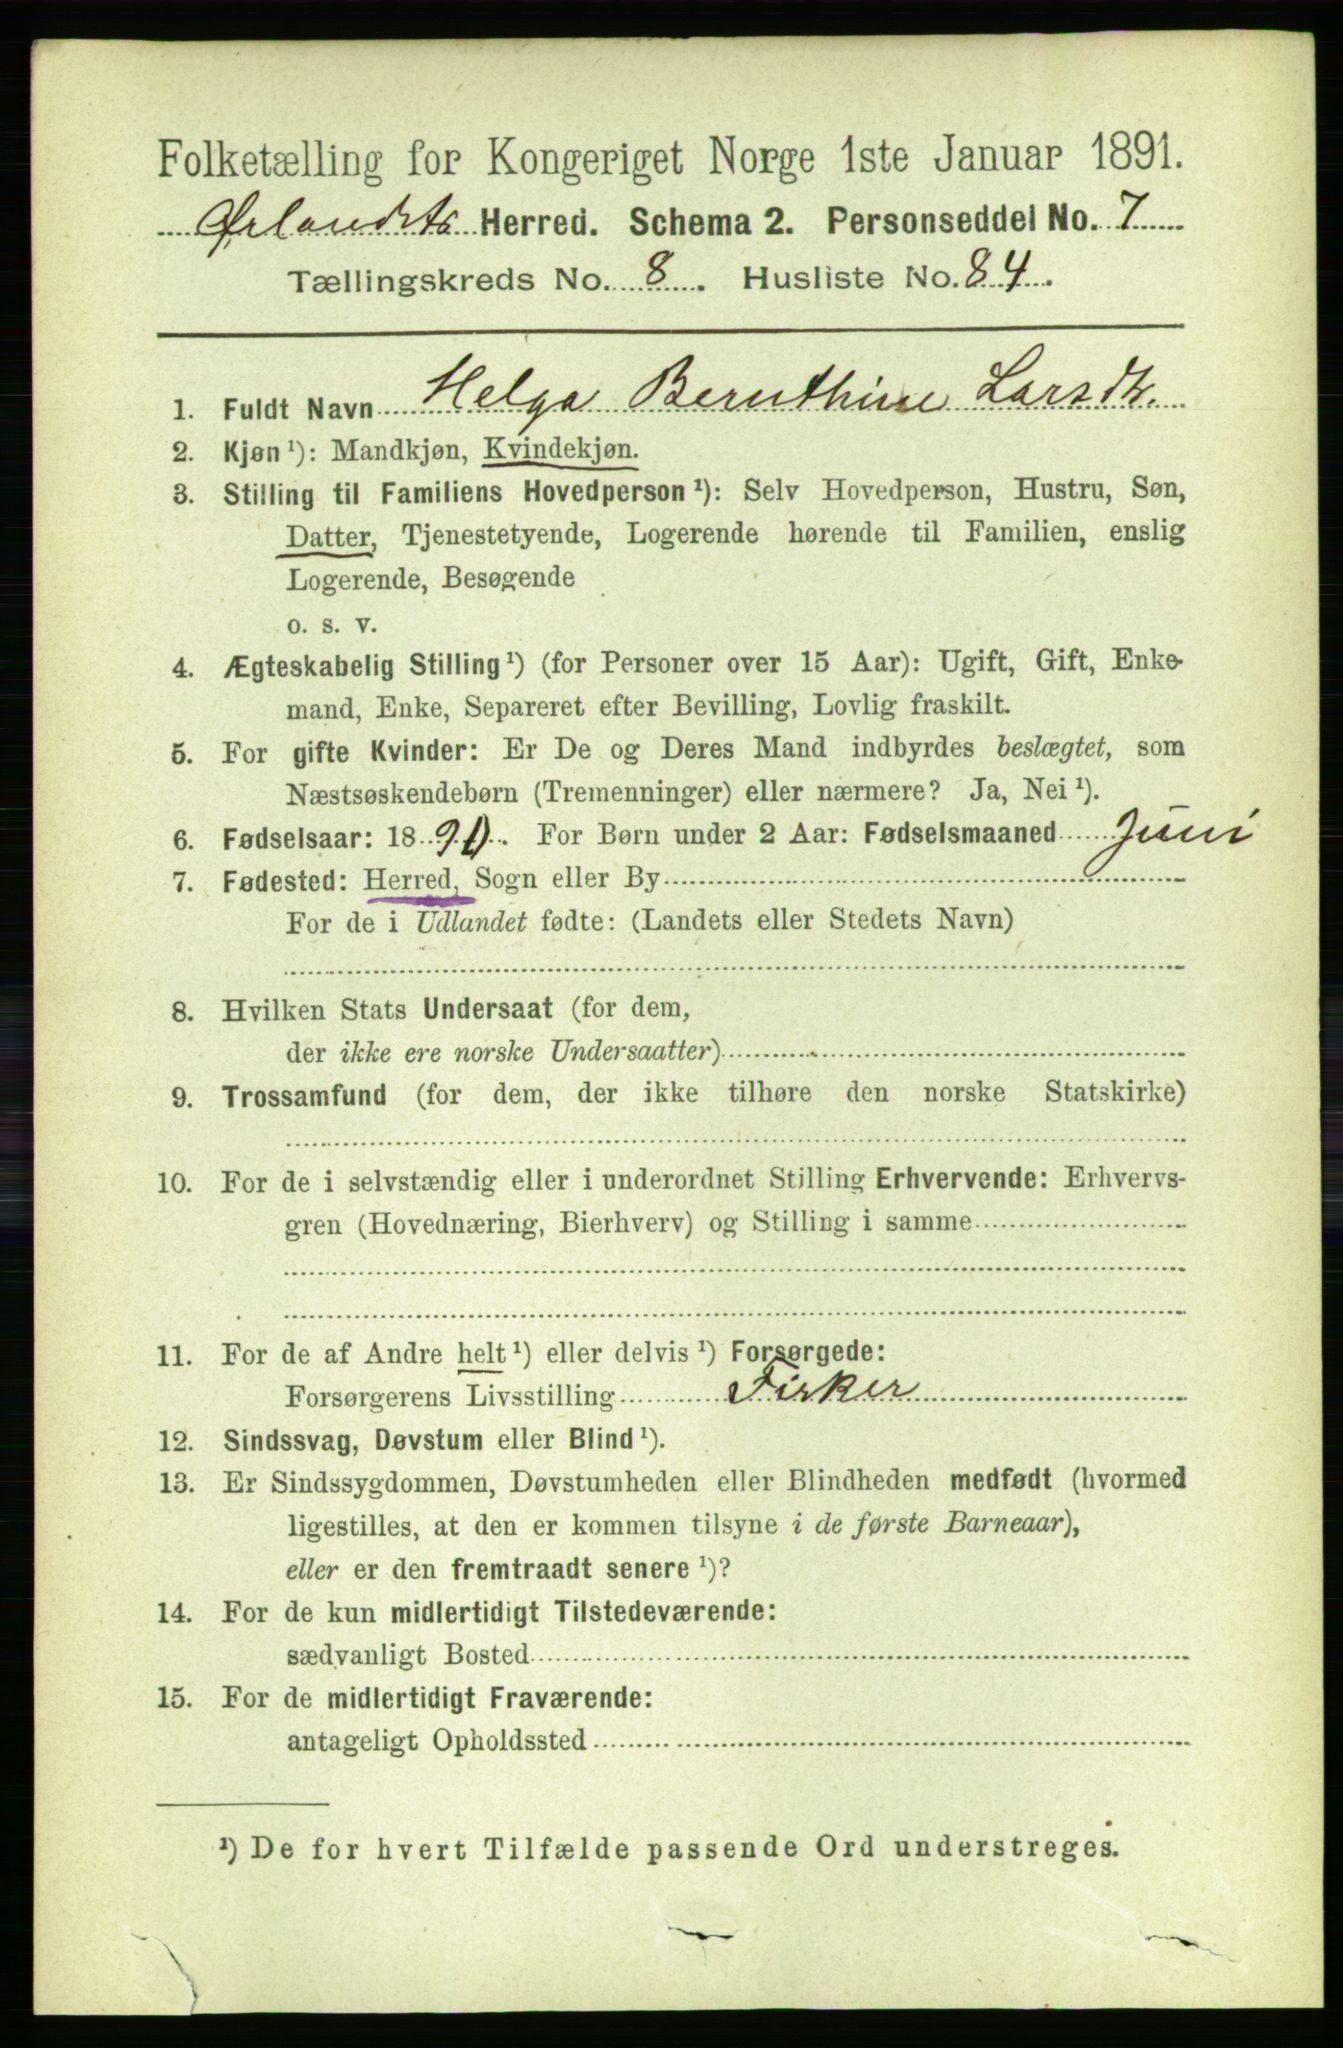 Folketælling for Kongeriget Norge 1ste Januar 1891.
Ørlandets Herred. Schema 2. Personseddel No. 7
Tællingskreds No. 8. Husliste No. 84.
1. Fuldt Navn Helga Bernthine Larsdtr.
2. Kjøn ¹): Mandkjøn, Kvindekjøn.
3. Stilling til Familiens Hovedperson ¹): Selv Hovedperson, Hustru, Søn,
Datter, Tjenestetyende, Logerende hørende til Familien, enslig
Logerende, Besøgende
o. s. v.
4. Ægteskabelig Stilling ¹) (for Personer over 15 Aar): Ugift, Gift, Enke-
mand, Enke, Separeret efter Bevilling, Lovlig fraskilt.
5. For gifte Kvinder: Er De og Deres Mand indbyrdes beslægtet, som
Næstsøskendebørn (Tremenninger) eller nærmere? Ja, Nei ¹).
6. Fødselsaar: 1890. For Børn under 2 Aar: Fødselsmaaned Juni
7. Fødested: Herred, Sogn eller By
For de i Udlandet fødte: (Landets eller Stedets Navn)
8. Hvilken Stats Undersaat (for dem,
der ikke ere norske Undersaatter)
9. Trossamfund (for dem, der ikke tilhøre den norske Statskirke)
10. For de i selvstændig eller i underordnet Stilling Erhvervende: Erhvervs-
gren (Hovednæring, Bierhverv) og Stilling i samme
11. For de af Andre helt ¹) eller delvis ¹) Forsørgede:
Forsørgerens Livsstilling Fisker
12. Sindssvag, Døvstum eller Blind ¹).
13. Er Sindssygdommen, Døvstumheden eller Blindheden medfødt (hvormed
ligestilles, at den er kommen tilsyne i de første Barneaar),
eller er den fremtraadt senere ¹)?
14. For de kun midlertidigt Tilstedeværende:
sædvanligt Bosted
15. For de midlertidigt Fraværende:
antageligt Opholdssted
¹) De for hvert Tilfælde passende Ord understreges.